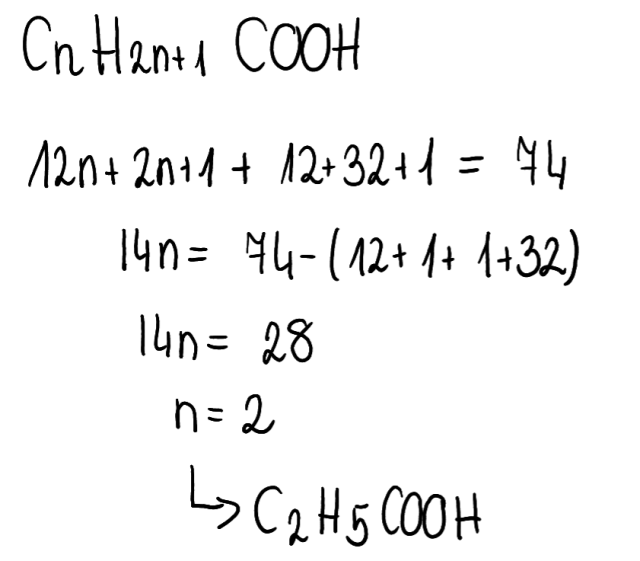 CnH2n+1 COOH
12n+2n+1 + 12+32+1 = 74
14n = 74-(12+1+1+32)
14n = 28
n = 2
↳ C2H5COOH